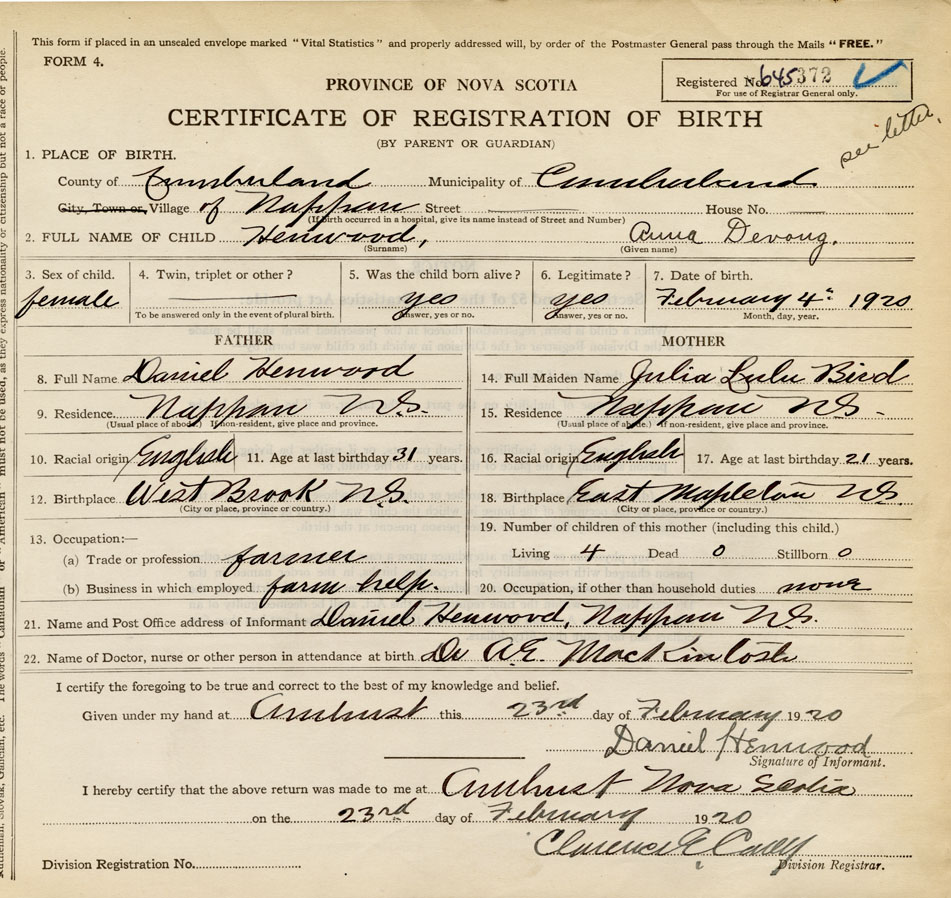 This form if placed in an unsealed envelope marked "Vital Statistics" and properly addressed will, by order of the Postmaster General pass through the Mails "FREE."
FORM 4.
PROVINCE OF NOVA SCOTIA
Registered No. 645372
For use of Registrar General only.
CERTIFICATE OF REGISTRATION OF BIRTH
(BY PARENT OR GUARDIAN)
see letter.
1. PLACE OF BIRTH.
County of Cumberland Municipality of Cumberland
City, Town or Village of Nappan Street House No.
(If birth occurred in a hospital, give its name instead of Street and Number)
2. FULL NAME OF CHILD Henwood, Anna
(Surname) (Given name)
3. Sex of child. 4. Twin, triplet or other? 5. Was the child born alive? 6. Legitimate? 7. Date of birth.
female yes yes February 4th 1920
To be answered only in the event of plural birth. Answer, yes or no. Answer, yes or no. Month, day, year.
FATHER
8. Full Name Daniel Henwood
9. Residence Nappan N.S.
(Usual place of abode.) If non-resident, give place and province.
10. Racial origin English 11. Age at last birthday 31 years.
12. Birthplace West Brook N.S.
(City or place, province or country.)
13. Occupation:—
(a) Trade or profession farmer
(b) Business in which employed farm help.
MOTHER
14. Full Maiden Name Julia Lulu Bird
15. Residence Nappan N.S.
(Usual place of abode.) If non-resident, give place and province.
16. Racial origin English 17. Age at last birthday 21 years.
18. Birthplace East Mapleton N.S.
(City or place, province or country.)
19. Number of children of this mother (including this child.)
Living 4 Dead 0 Stillborn 0
20. Occupation, if other than household duties none
21. Name and Post Office address of Informant Daniel Henwood, Nappan N.S.
22. Name of Doctor, nurse or other person in attendance at birth Dr A.E. MacKintosh
I certify the foregoing to be true and correct to the best of my knowledge and belief.
Given under my hand at Amherst this 23rd day of February 1920
Daniel Henwood
Signature of Informant.
I hereby certify that the above return was made to me at Amherst Nova Scotia
on the 23rd day of February 1920
Clarence E
Division Registration No. Division Registrar.
Ruthenian, Slovak, Galician, etc. The words "Canadian" or "American" must not be used, as they express nationality or citizenship but not a race or people.